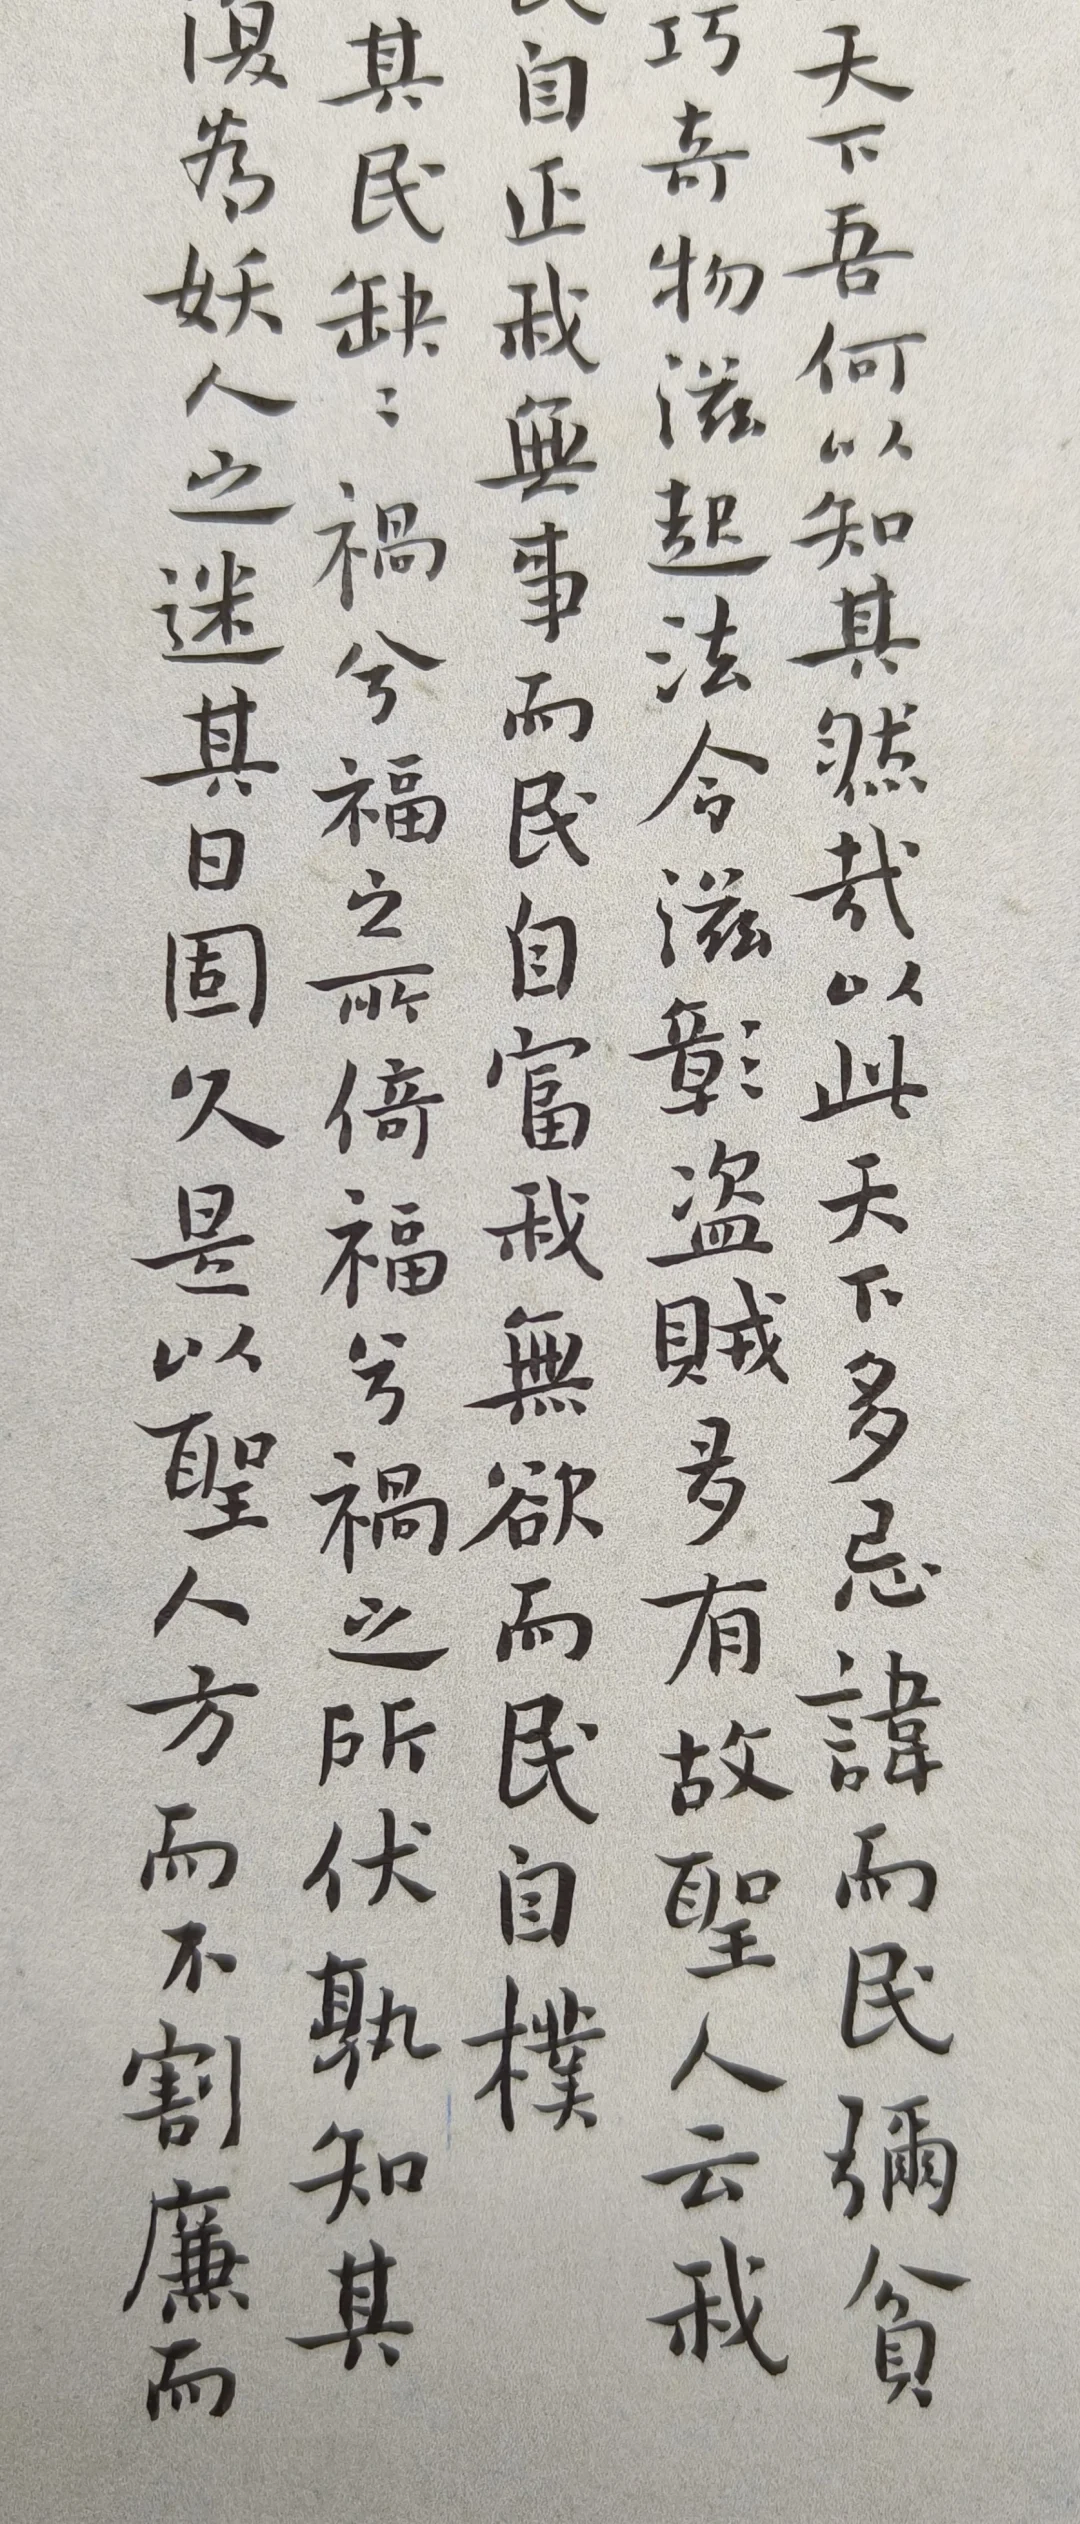 天下吾何以知其然哉以此天下多忌諱而民彌貧
巧奇物滋起法令滋彰盜賊多有故聖人云我
民自正我無事而民自富我無欲而民自樸
其民缺〻禍兮福之所倚福兮禍之所伏孰知其
復為妖人之迷其日固久是以聖人方而不割廉而